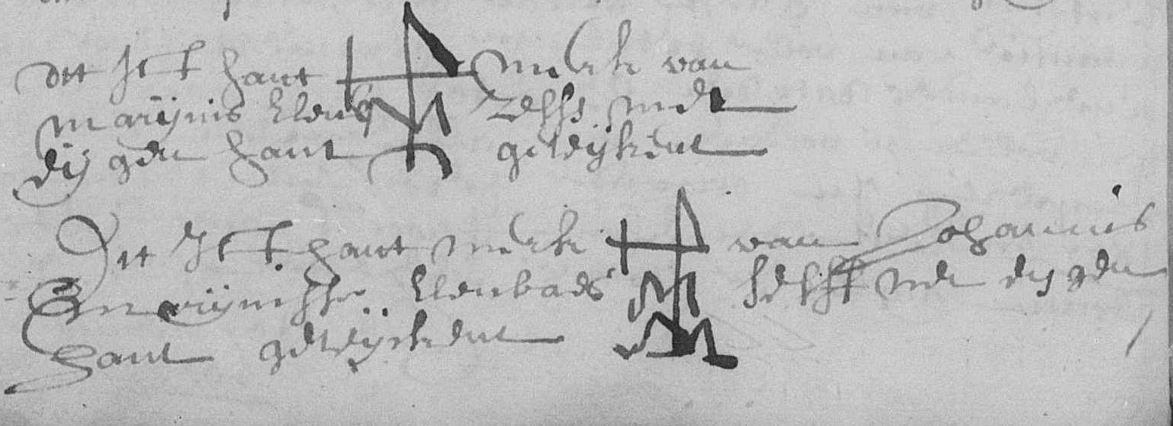 dit Is t hant merk van
marijnis Elenb zelfs met
eijgen hant geteijkent
Dit Is t hant merk van Johannis
marijnisse Elenbaes selfs met eijgen
hant geteijckent